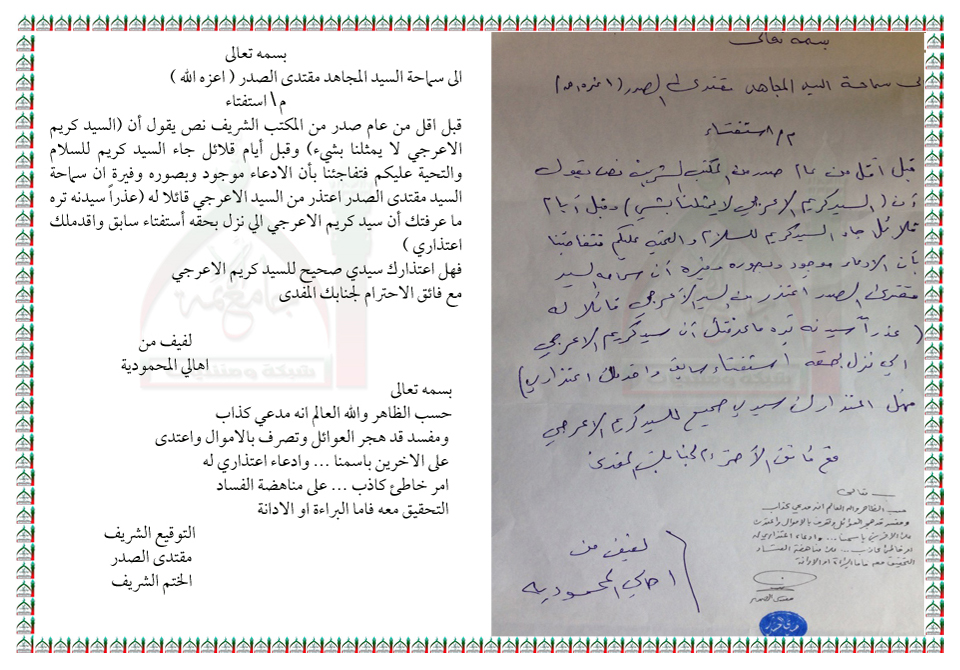 بسمه تعالى
الى سماحة السيد المجاهد مقتدى الصدر ( اعزه الله )
م\ استفتاء
قبل اقل من عام صدر من المكتب الشريف نص يقول أن (السيد كريم
الاعرجي لا يمثلنا بشيء) وقبل أيام قلائل جاء السيد كريم للسلام
والتحية عليكم فتفاجئنا بأن الادعاء موجود وبصوره وفيرة ان سماحة
السيد مقتدى الصدر اعتذر من السيد الاعرجي قائلا له (عذراً سيدنه تره
ما عرفتك أن سيد كريم الاعرجي الي نزل بحقه أستفتاء سابق واقدملك
اعتذاري )
فهل اعتذارك سيدي صحيح للسيد كريم الاعرجي
مع فائق الاحترام لجنابك المفدى
لفيف من
اهالي المحمودية
بسمه تعالى
حسب الظاهر والله العالم انه مدعي كذاب
ومفسد قد هجر العوائل وتصرف بالاموال واعتدى
على الاخرين باسمنا ... وادعاء اعتذاري له
امر خاطئ كاذب ... على مناهضة الفساد
التحقيق معه فاما البراءة او الادانة
التوقيع الشريف
مقتدى الصدر
الختم الشريف
بسمه تعالى
الى سماحة السيد المجاهد مقتدى الصدر (اعزه الله)
م/ استفتاء
قبل أقل من عام صدر من المكتب الشريف نص يقول
أن (السيد كريم الاعرجي لا يمثلنا بشيء) وقبل أيام
قلائل جاء السيد كريم للسلام والتحية عليكم فتفاجئنا
بأن الادعاء موجود وبصوره وفيره أن سماحة السيد
مقتدى الصدر اعتذر من السيد الأعرجي قائلا له
( عذراً سيدنه تره ما عرفتك أن سيد كريم الاعرجي
الي نزل بحقه استفتاء سابق واقدملك اعتذاري)
فهل اعتذارك سيدي صحيح للسيد كريم الاعرجي
مع فائق الأحترام لجنابك المفدى
لفيف من
اهالي المحمودية
تعالى
حسب الظاهر والله العالم انه مدعي كذاب
ومفسد قد هجر العوائل وتصرف بالاموال واعتدى
على الاخرين باسمنا ... وادعاء اعتذاري له
امر خاطئ كاذب ... على مناهضة الفساد
التحقيق معه فاما البراءة او الادانة
مقتدى الصدر
شبكة ومنتديات
جامع الأئمة